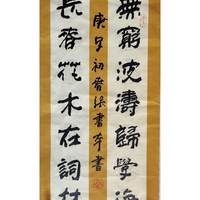 無窮波濤歸學海
庚子初夏張書書
長春花木在詞林